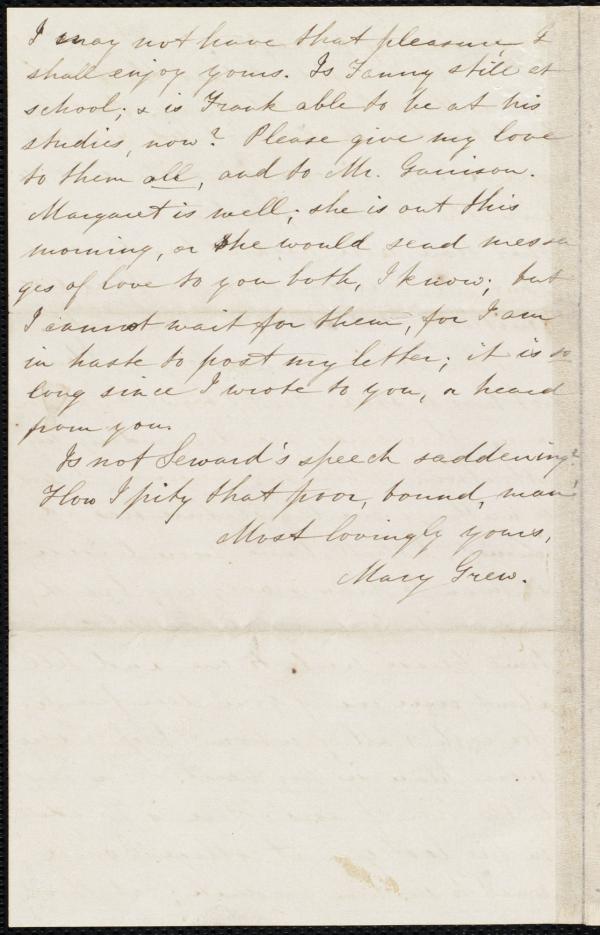 I may not have that pleasure, I
shall enjoy yours. Is Fanny still at
school; & is Frank able to be at his
studies, now? Please give my love
to them all, and to Mr. Garrison.
Margaret is well; she is out this
morning, or she would send messa
ges of love to you both, I know; but
I cannot wait for them, for I am
in haste to post my letter; it is so
long since I wrote to you, or heard
from you.
Is not Seward's speech saddening?
How I pity that poor, bound, man!
Most lovingly yours,
Mary Grew.